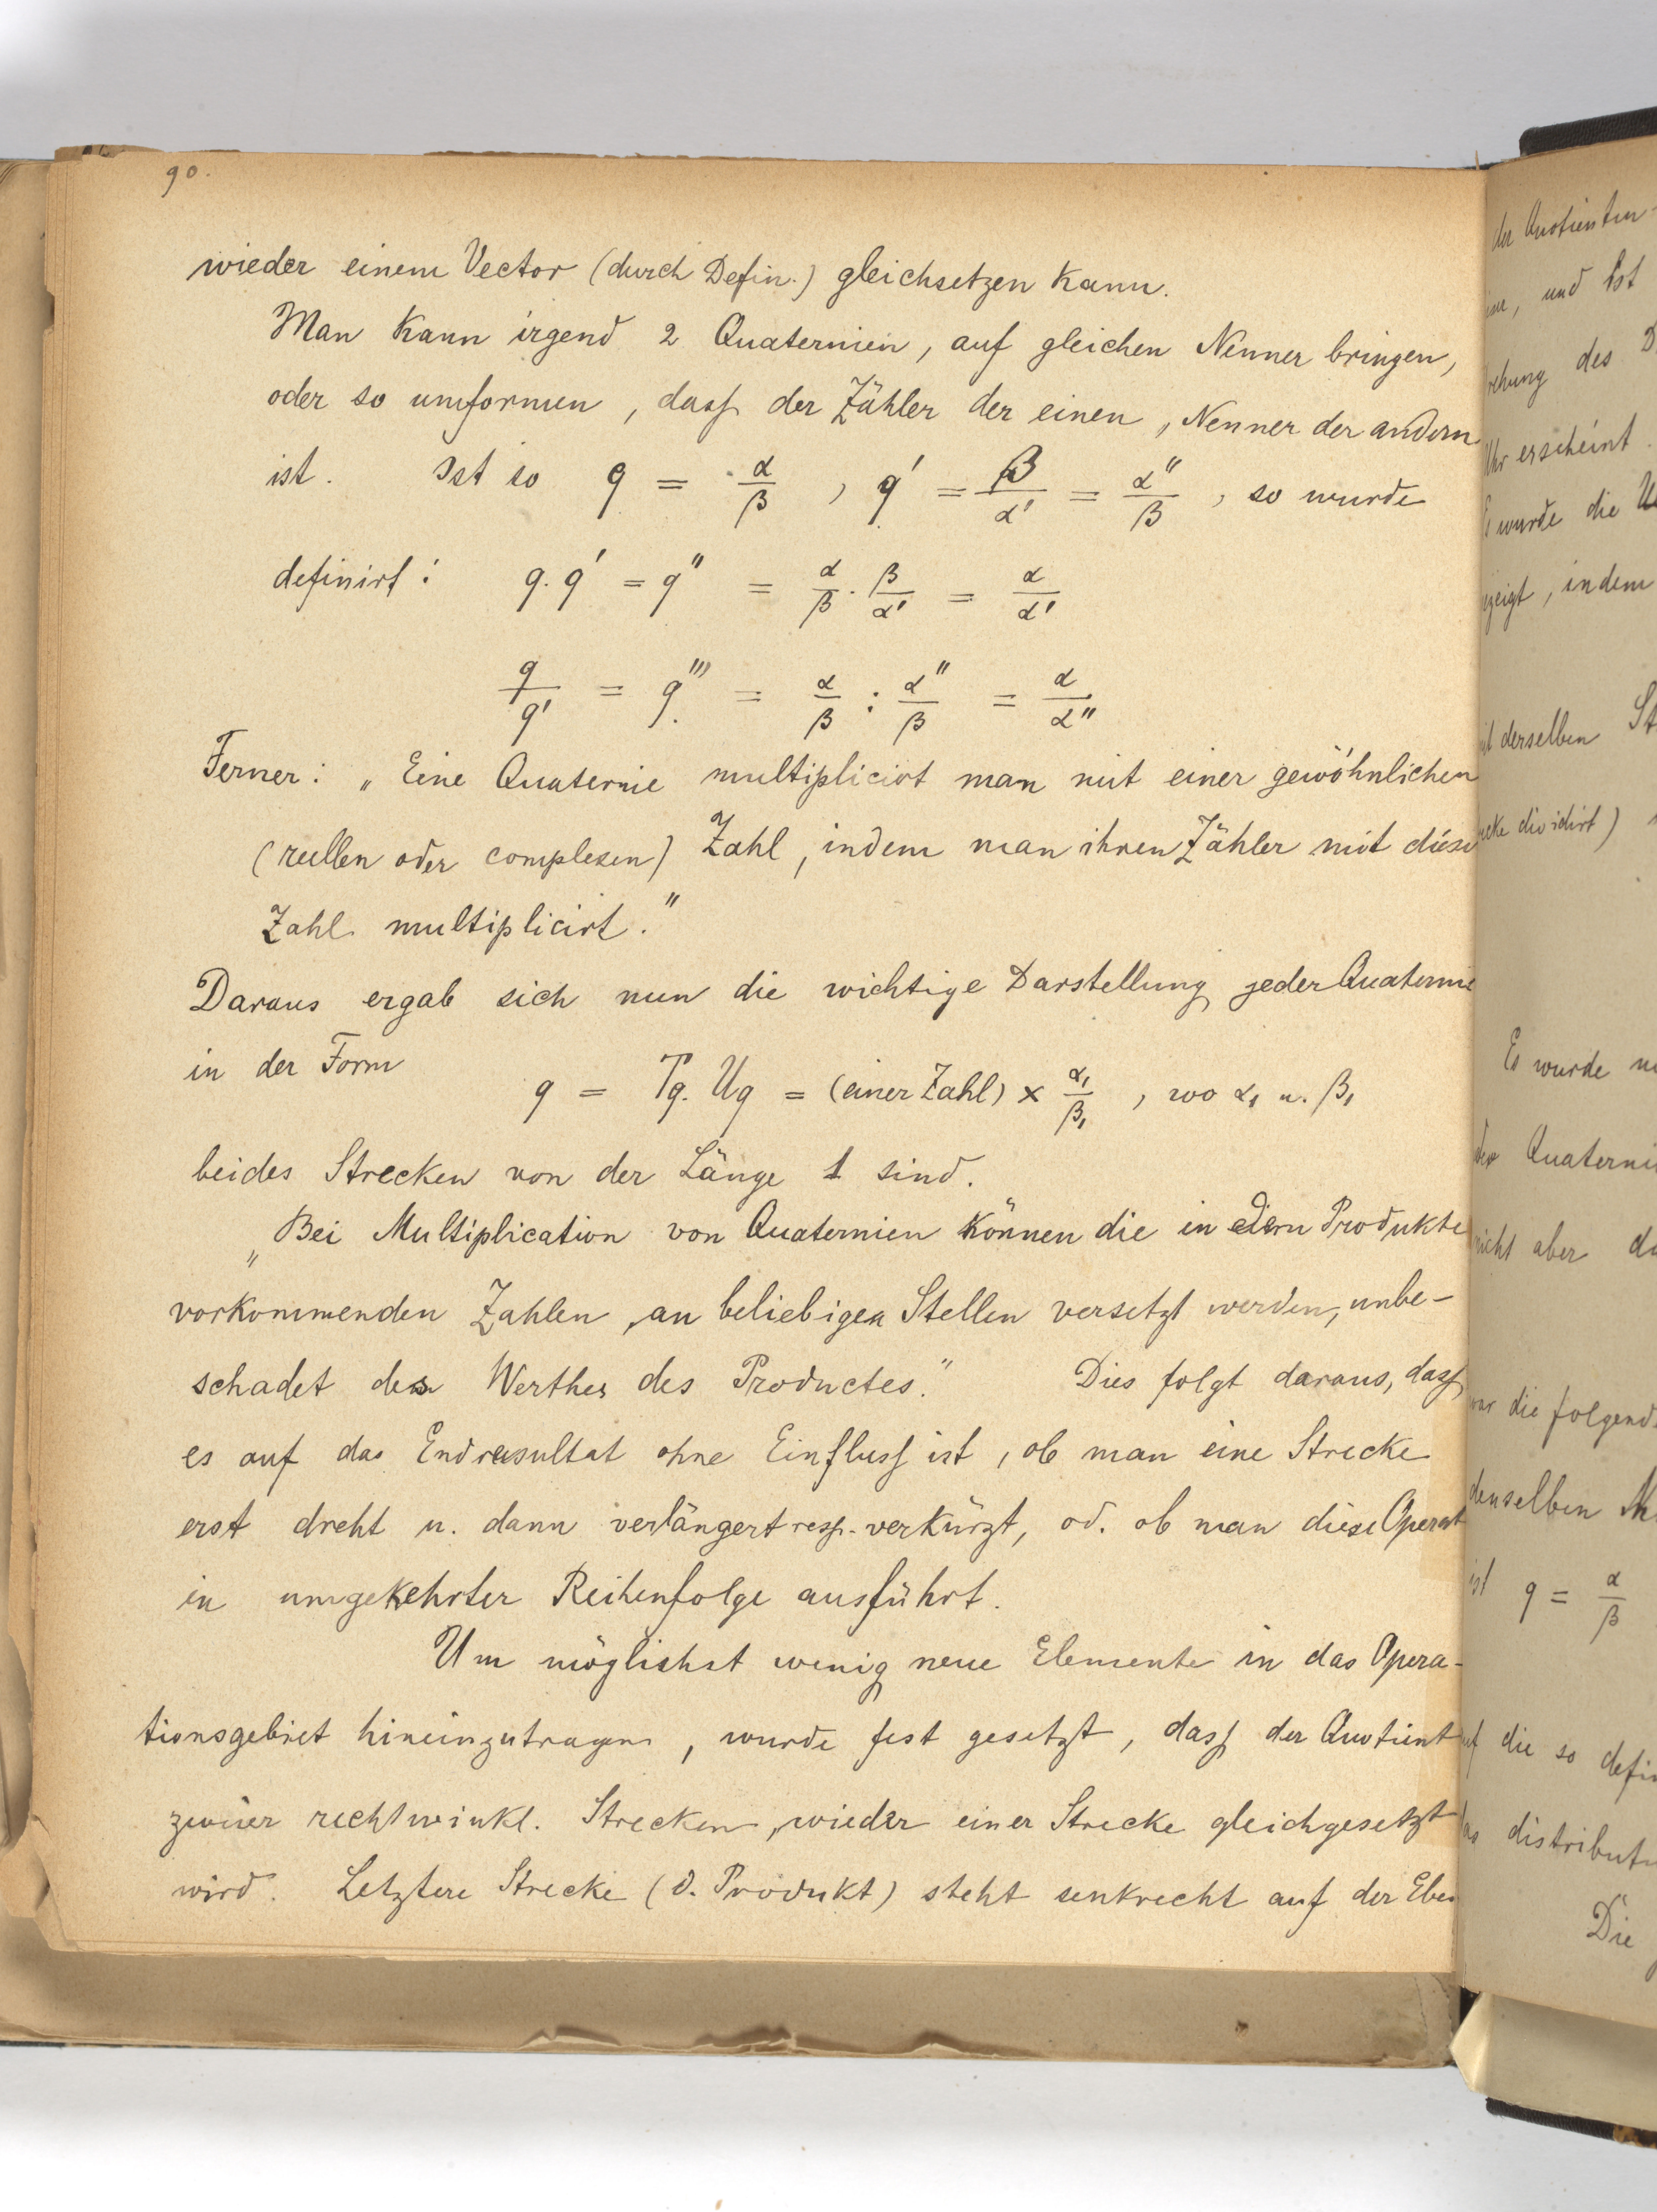 90.
wieder einem Vector (durch Defin.) gleichsetzen kann.
Man kann irgend 2 Quaternien, auf gleichen Nenner bringen,
oder so umformen, dass der Zähler der einen, Nenner der andern
ist. Ist so q = α/β, q' = β/α' = α''/β, so wurde
definirt: q. q' = q'' = α/β · β/α' = α/α'
q/q' = q''' = α/β : α''/β = α/α''
Ferner: „Eine Quaternie multiplicirt man mit einer gewöhnlichen
(reellen oder complexen) Zahl, indem man ihren Zähler mit diese
Zahl multiplicirt."
Daraus ergab sich nun die wichtige Darstellung jeder Quaternie
in der Form
q = Tq. Uq = (einer Zahl) × α₁/β₁, wo α₁ u. β₁
beides Strecken von der Länge 1 sind.
„Bei Multiplication von Quaternien können die in dem Produkte
vorkommenden Zahlen, an beliebigen Stellen versetzt werden, unbe-
schadet des Werthes des Productes." Dies folgt daraus, dass
es auf das Endresultat ohne Einfluss ist, ob man eine Strecke
erst dreht u. dann verlängert resp. verkürzt, od. ob man diese Operat
in umgekehrter Reihenfolge ausführt.
Um möglichst wenig neue Elemente in das Opera-
tionsgebiet hineinzutragen, wurde fest gesetzt, dass der Quotient
zweier rechtwinkl. Strecken, wieder einer Strecke gleichgesetzt
wird. Letztere Strecke (d. Produkt) steht senkrecht auf der Eben
der Quotienten-
und ist
des D
Uhr erscheint.
Es wurde die
indem
derselben St
dividirt)
Es wurde
Quaterni
nicht aber
die folgend
denselben
ist q = α/β
die so defin
distributi
Die